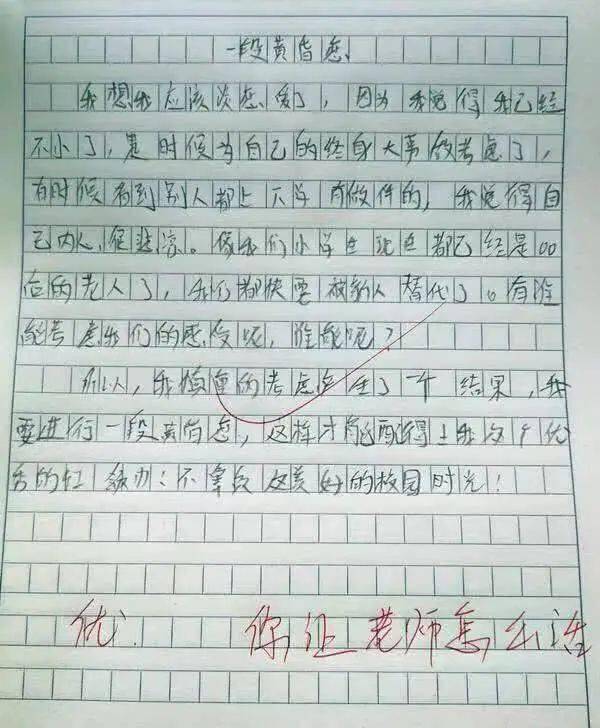 一段黄昏恋
我想我应该谈恋爱了，因为我觉得我已经
不小了，是时候为自己的终身大事做考虑了，
有时候看到别人都上下学有做伴的，我觉得自
己内人很悲凉。像我们小学生现在都已经是00
后的老人了，我们都快要被新人替代了。有谁
能考虑我们的感受呢，谁能呢？
所以，我慎重的考虑产生了一个结果，我
要进行一段黄昏恋，这样才能配得上我这个优
秀的红领巾！不辜负这美好的校园时光！
优 你让老师怎么活